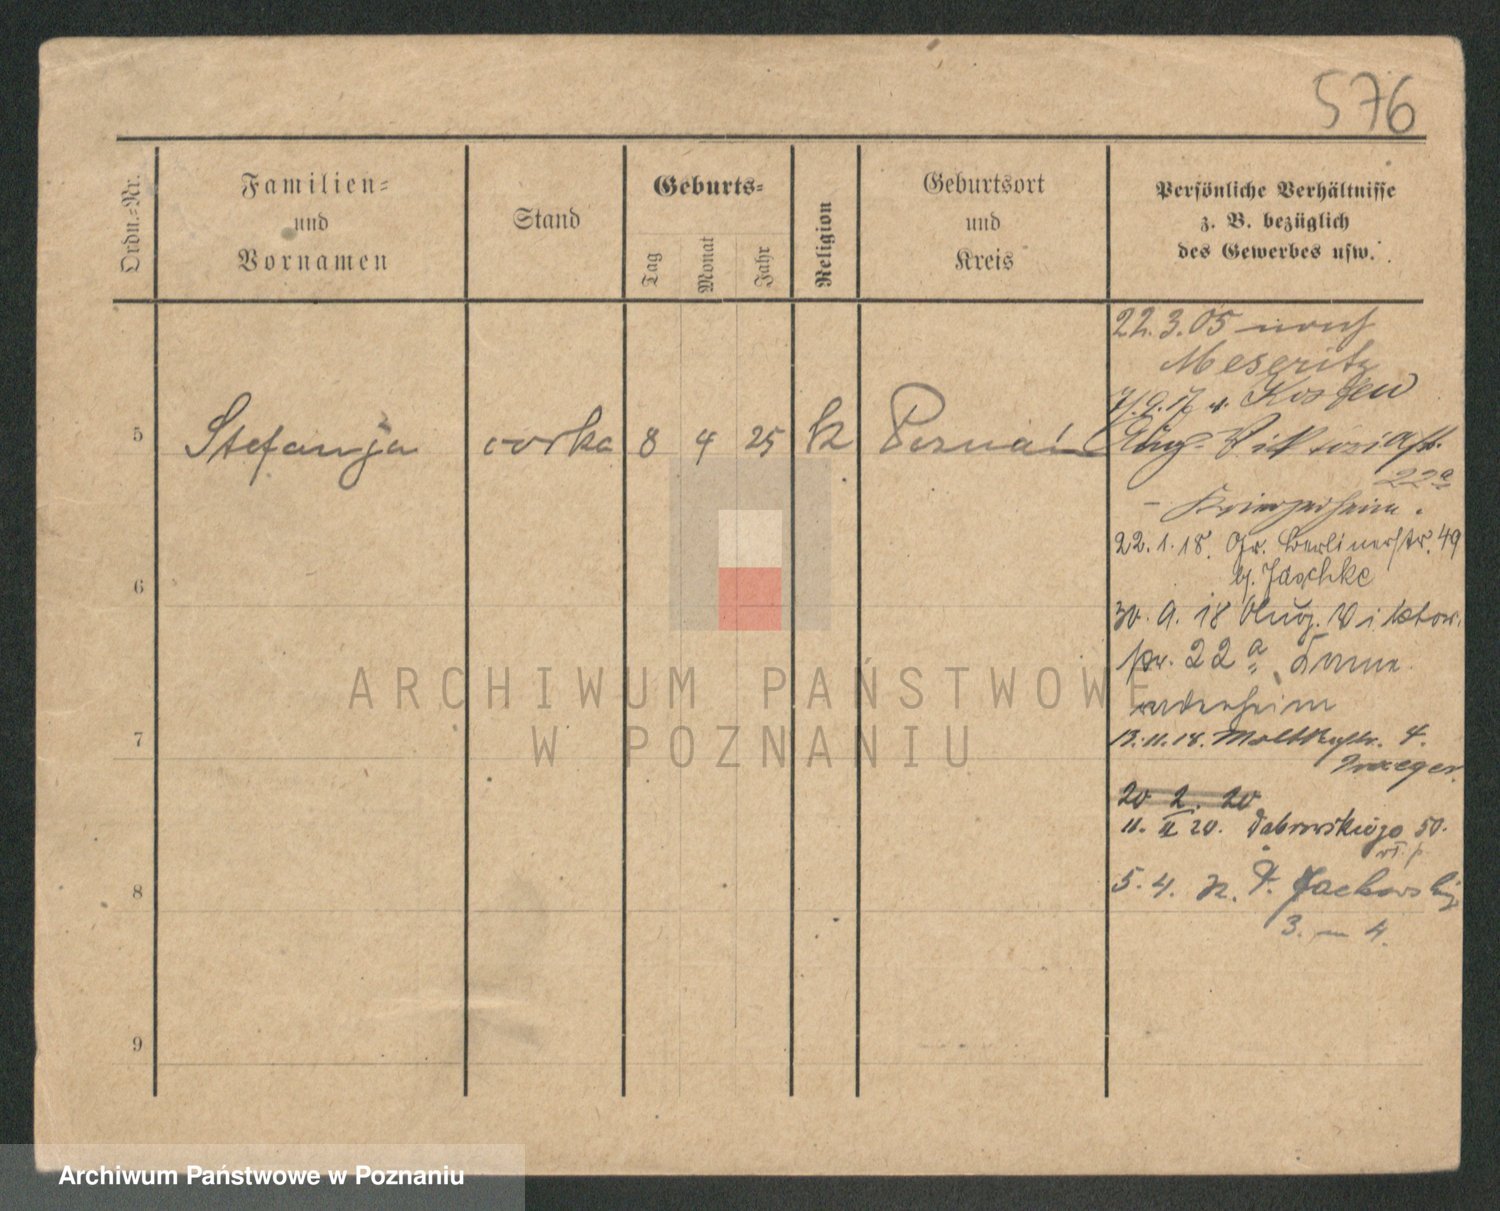 576
Ordn.-Nr.
Familien-
und
Vornamen
Stand
Geburts-
Tag
Monat
Jahr
Religion
Geburtsort
und
Kreis
Persönliche Verhältnisse
z. B. bezüglich
des Gewerbes usw.
22.3.05 nach
Meseritz
5 Stefanja corka 8 4 25 k Poznań
22a
22.1.18. Gr. Berlinerstr. 49
b. Jaschke
6
30.9.18 Aug. Viktor.
22a
7
13.11.18. Moltkestr. 4.
20 2. 20
11. II 20. Dabrowskiego 50.
8
5.4.
3. 4.
9
ARCHIWUM PAŃSTWOWE
W POZNANIU
Archiwum Państwowe w Poznaniu